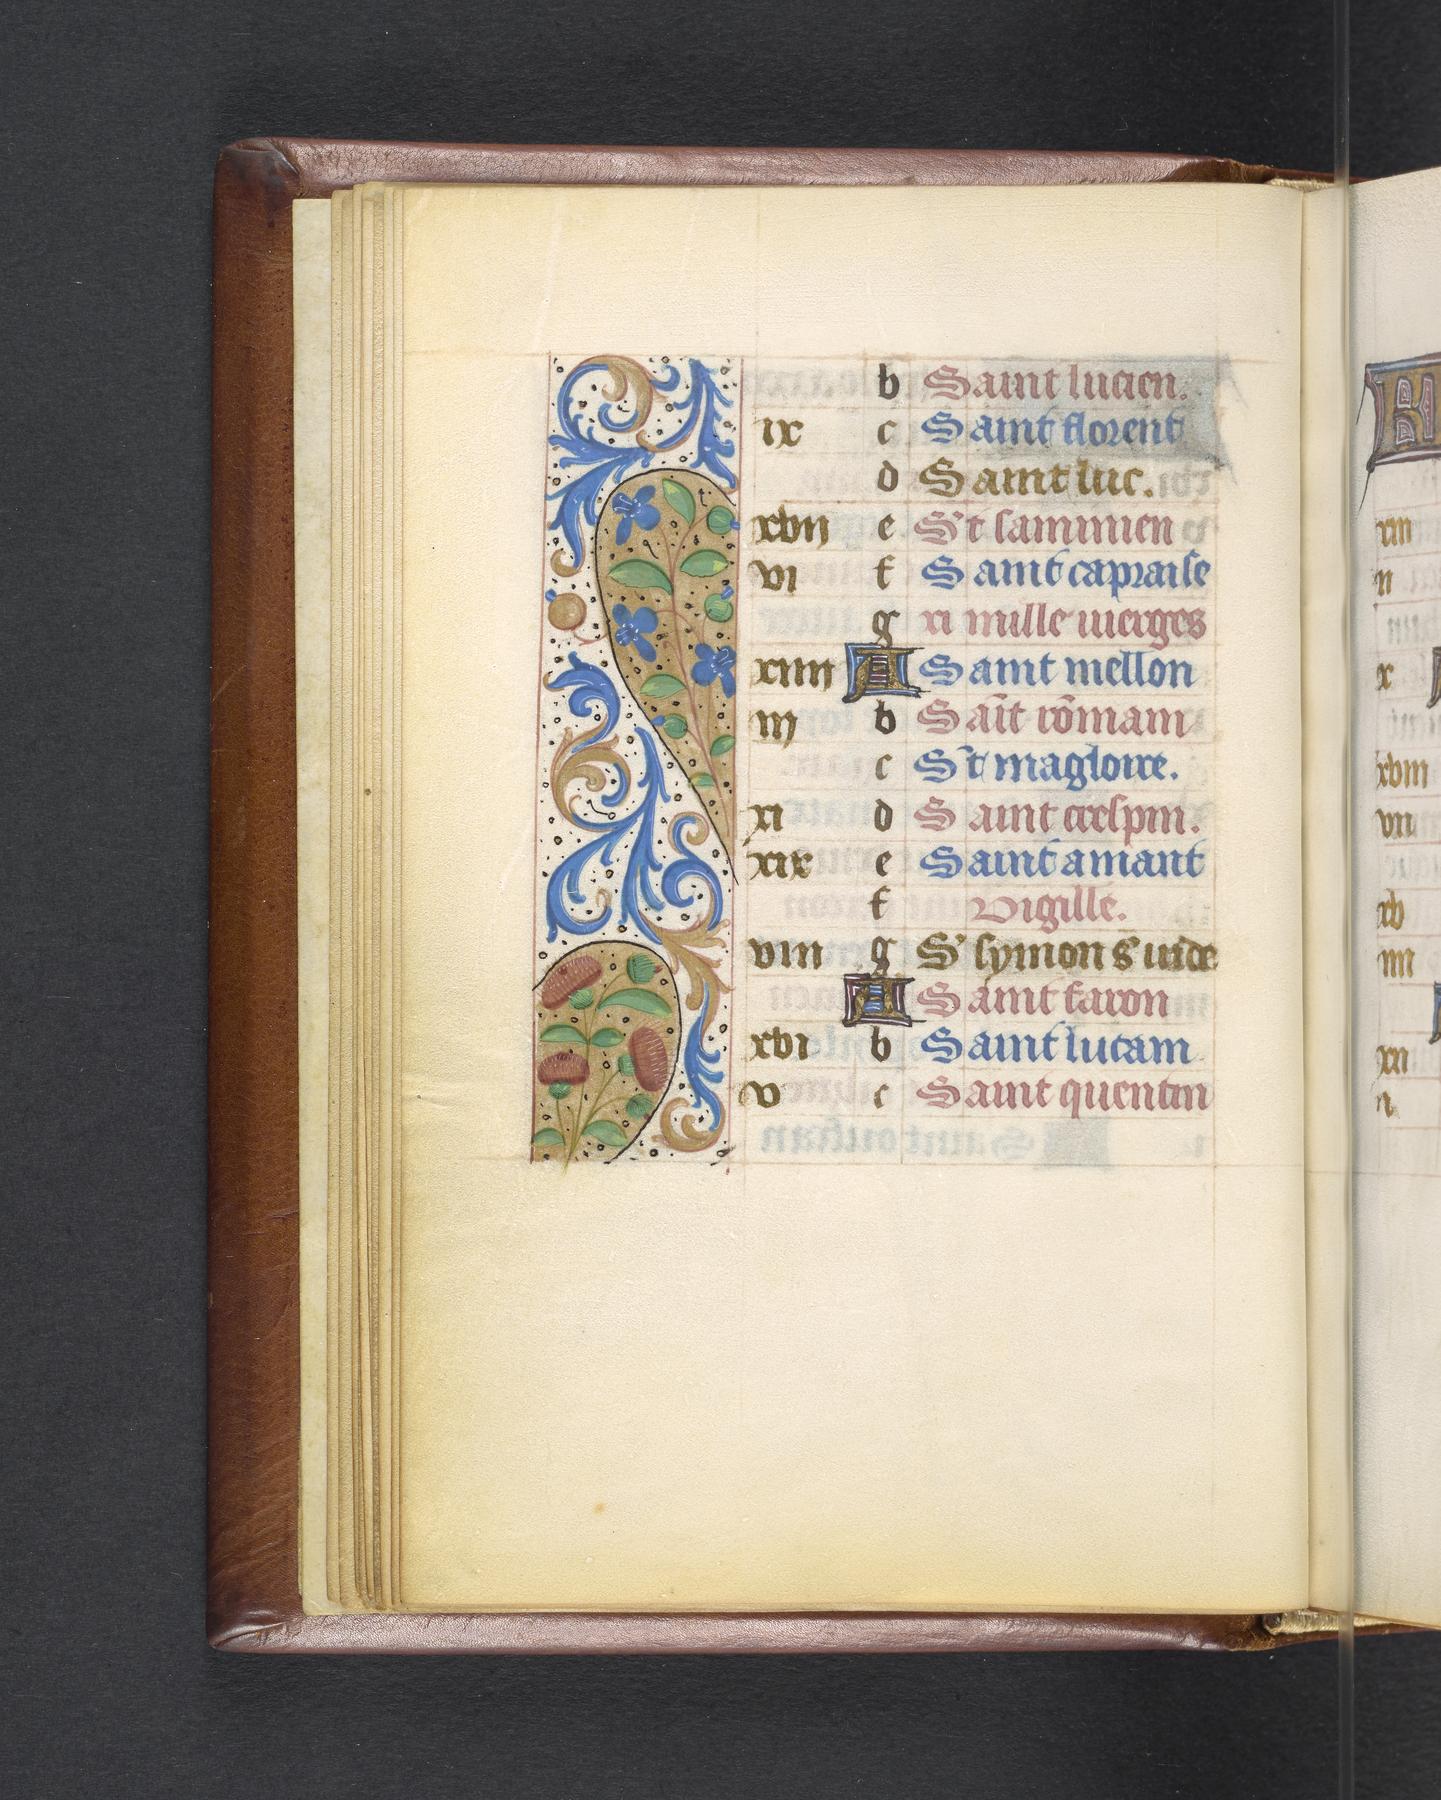 b Saint lucien.
ix c Saint florent
d Saint luc.
xvii e St saminien
vi f Saint capraise
g xi mille vierges
xiiii A Saint mellon
iii b Saīt rōmam
c St magloire.
xi d Saint crespin.
xix e Saint amant
f Vigille.
viii g S' symon s' iude
A Saint faron
xvi b Saint lucam
v c Saint quentin
xiii
ii
x
xviii
vii
xv
iiii
xii
i.